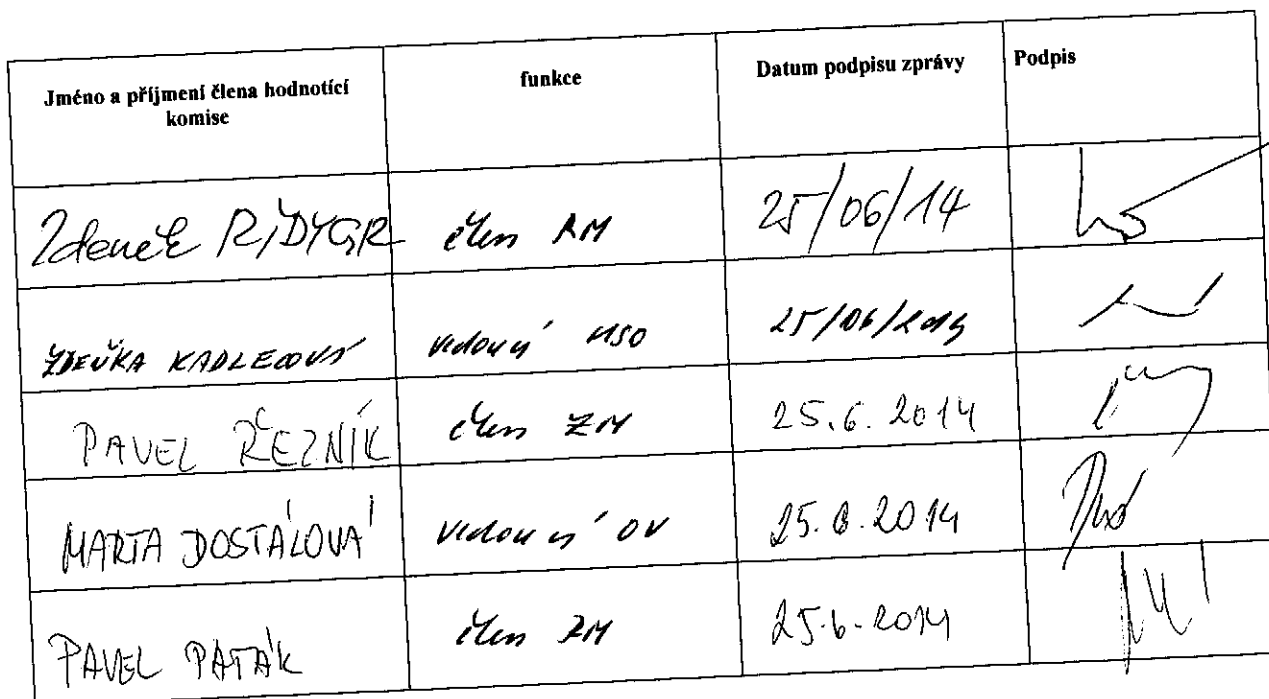 Jméno a příjmení člena hodnotící
komise
funkce
Datum podpisu zprávy
Podpis
Zdeněk člen RM 25/06/14
ZDEŇKA KADLECOVÁ vedoucí 25/06/2014
PAVEL ŘEZNÍK člen ZM 25.6.2014
MARTA DOSTÁLOVÁ vedoucí OV 25.6.2014
PAVEL PATÁK člen ZM 25.6.2014